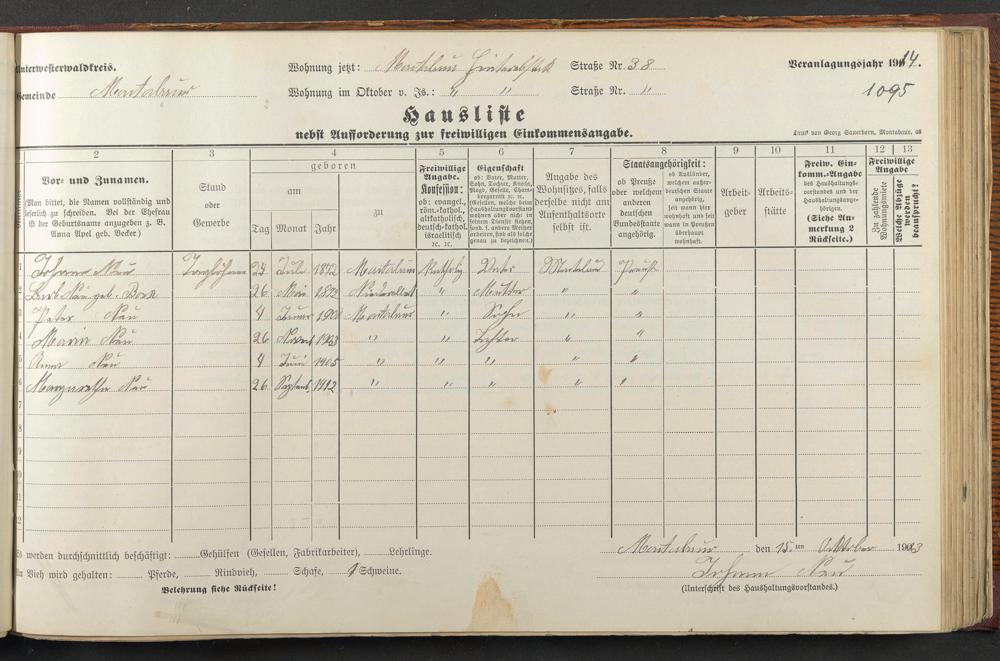 Unterwesterwaldkreis.
Wohnung jetzt: Montabaur Straße Nr. 38
Veranlagungsjahr 1914.
Gemeinde Montabaur
Wohnung im Oktober v. Js.: " " Straße Nr. "
1095
Hausliste
nebst Aufforderung zur freiwilligen Einkommensangabe.
Druck von Georg Sauerborn, Montabaur.
2 3 4 5 6 7 8 9 10 11 12 13
Vor- und Zunamen.
(Man bittet, die Namen vollständig und
leserlich zu schreiben. Bei der Ehefrau
ist der Geburtsname anzugeben z. B.
Anna Apel geb. Becker.)
Stand
oder
Gewerbe
geboren
am
Tag Monat Jahr
zu
Freiwillige
Angabe.
Konfession:
ob: evangel.,
röm.-kathol.,
altkatholisch,
deutsch-kathol.
israelitisch
ec. ec.
Eigenschaft
ob: Vater, Mutter,
Sohn, Tochter, Knecht,
Magd, Geselle, Cham-
bregarnist ec. ec.
(Gesellen, welche beim
Haushaltungsvorstand
wohnen aber nicht in
seinem Dienste stehen,
sond. f. andere Meister
arbeiten, sind als solche
genau zu bezeichnen.)
Angabe des
Wohnsitzes, falls
derselbe nicht am
Aufenthaltsorte
selbst ist.
Staatsangehörigkeit:
ob Preuße
oder welchem
anderen
deutschen
Bundesstaate
angehörig.
ob Ausländer,
welchem außer-
deutschen Staate
angehörig,
seit wann hier
wohnhaft und seit
wann in Preußen
überhaupt
wohnhaft.
Arbeit-
geber
Arbeits-
stätte
Freiw. Ein-
komm.-Angabe
des Haushaltungs-
vorstandes und der
Haushaltungsange-
hörigen.
(Siehe An-
merkung 2
Rückseite.)
Freiwillige
Angabe
Zu zahlende
Wohnungsmiete
Welche Abzüge
werden
beansprucht?
1 Johann Nau 24 Juli 1872 Montabaur Kathol. Vater Montabaur Preuße
2 Nau geb. 26 Mai 1872 " Mutter " "
3 Peter Nau 4 Januar 1901 Montabaur " Sohn " "
4 Maria Nau 26 Novemb 1903 " " Tochter " "
5 Anna Nau 4 Juni 1905 " " " " "
6 Margarethe Nau 26 Septemb. 1912 " " " " "
7
8
9
10
11
12
Es werden durchschnittlich beschäftigt: Gehülfen (Gesellen, Fabrikarbeiter), Lehrlinge.
Montabaur den 15. ten Oktober 1913
An Vieh wird gehalten: Pferde, Rindvieh, Schafe, 1 Schweine.
Johann Nau
Belehrung siehe Rückseite!
(Unterschrift des Haushaltungsvorstandes.)